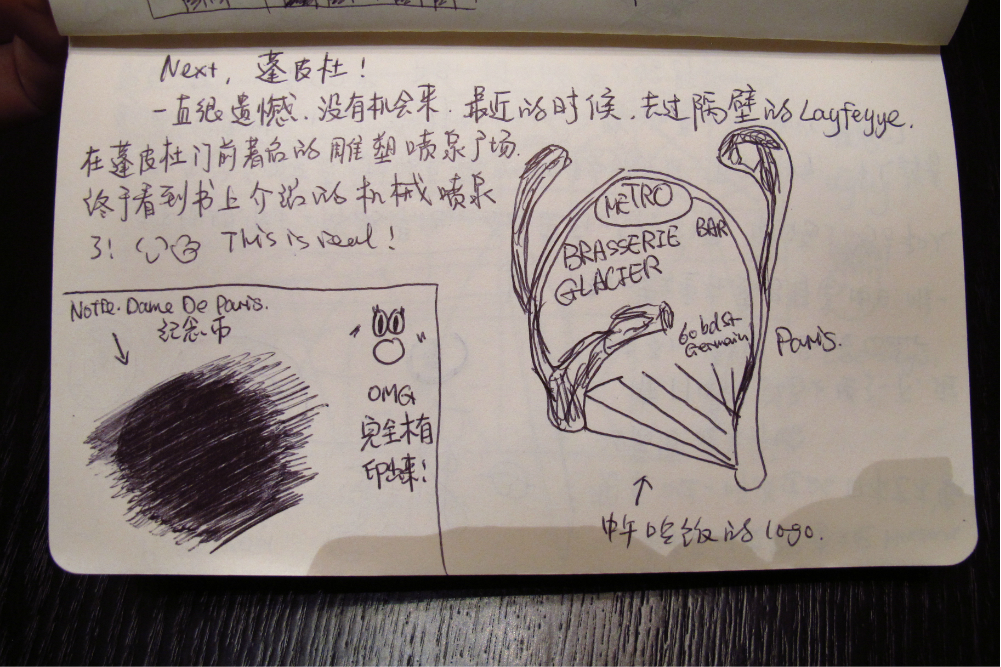 Next, 蓬皮杜!
一直很遗憾.没有机会来.最近的时候.去过隔壁的Layfeyye.
在蓬皮杜门前著名的雕塑喷泉广场.
终于看到书上介绍的机械喷泉
了! This is real!
METRO
BRASSERIE BAR
GLACIER
60 bd St
Germain
Paris.
中午吃饭的logo.
Notre.Dame De Paris.
纪念币
OMG
完全木有
印出来!